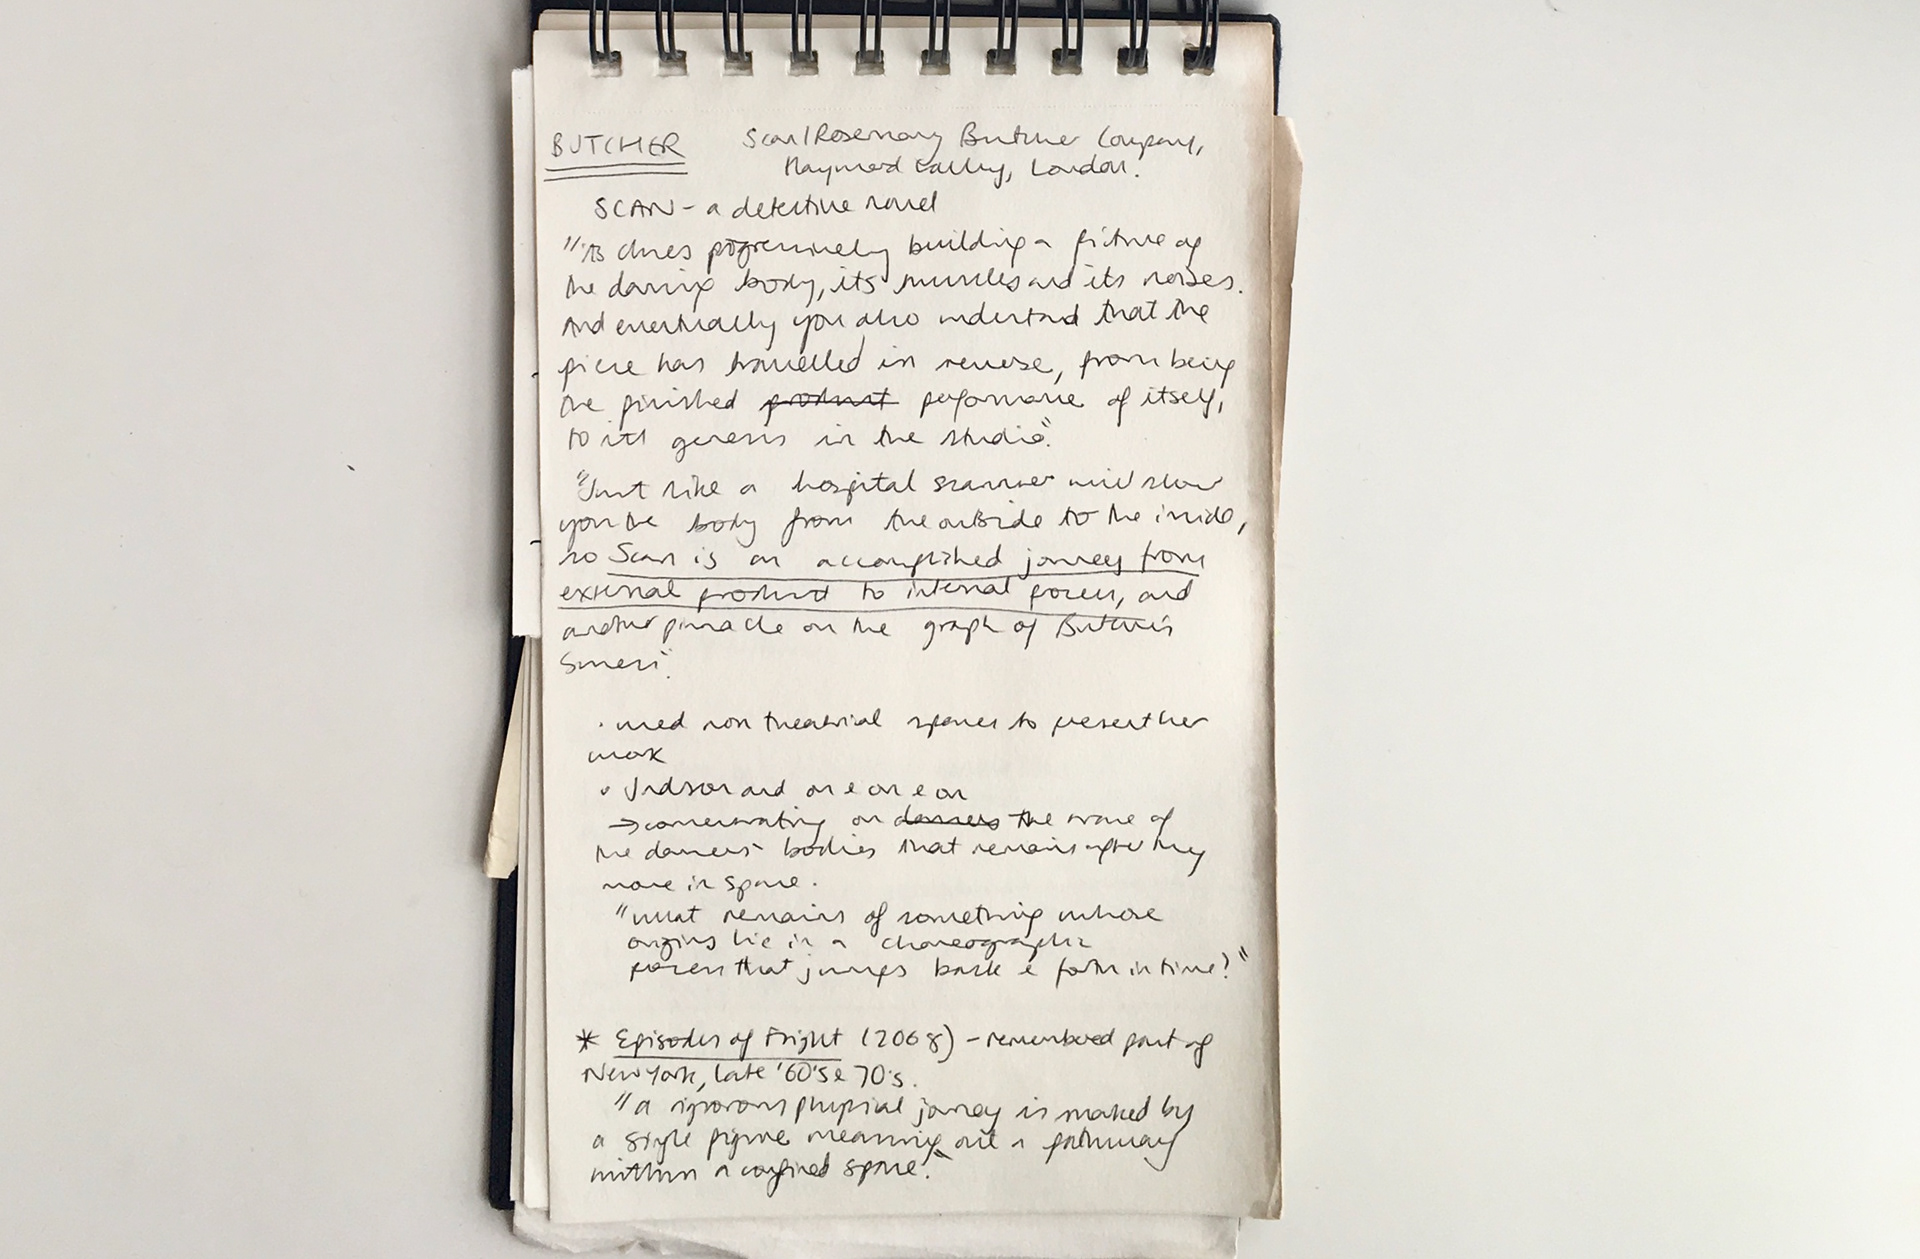 BUTCHER Scan/Rosemary Butcher Company,
Hayward Gallery, London.
SCAN - a detective novel
"its clues progressively building a picture of
the dancing body, its muscles and its noises.
And eventually you also understand that the
piece has travelled in reverse, from being
the finished product performance of itself,
to its genesis in the studio".
"Just like a hospital scanner will show
you the body from the outside to the inside,
so Scan is an accomplished journey from
external product to internal process, and
another pinnacle on the graph of Butcher's
.
· used non theatrical spaces to present her
work
· Judson and one on one
→ concentrating on dancers the trace of
the dancers' bodies that remains after they
move in space.
"what remains of something whose
origins lie in a choreographic
process that jumps back & forth in time?"
* Episodes of Flight (2008) - remembered part of
New York, late '60's & 70's.
"a rigorous physical journey is marked by
a single figure measuring out a pathway
within a confined space."